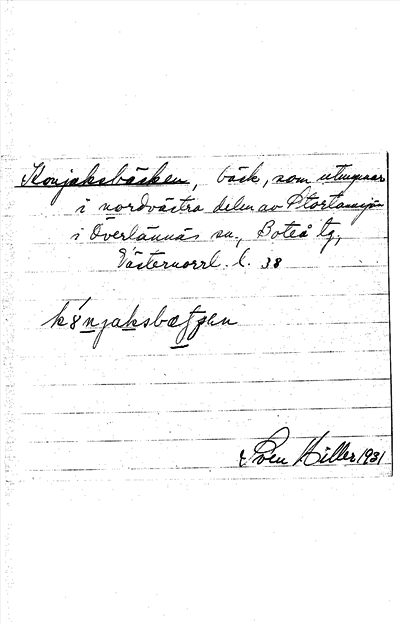 Konjaksbäcken, bäck, som utmynnar
i nordvästra delen av Storlamsjön
i Överlännäs sn, Boteå tg,
Västernorrl. l. 38
Sven Hiller 1931